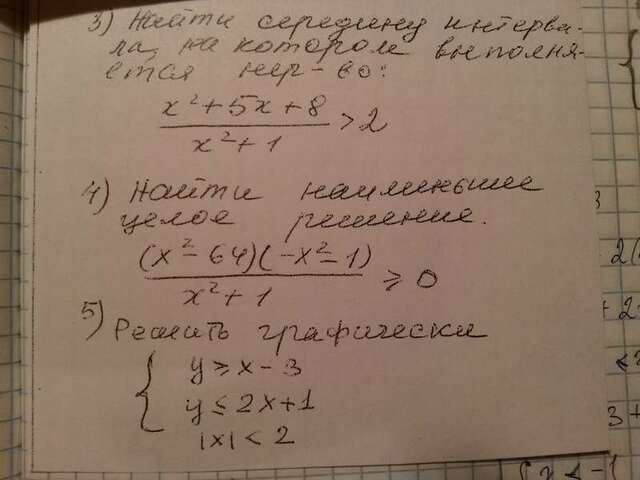 3) Найти середину интерва-
ла, на котором выполня-
ется нер-во:
x²+5x+8
x²+1
>2
4) Найти наименьшее
целое решение.
(x²-64)(-x²-1)
x²+1
≥0
5) Решить графически
{ y≥x-3
y≤2x+1
|x|<2
3
2(
+2
3+
{x<-1